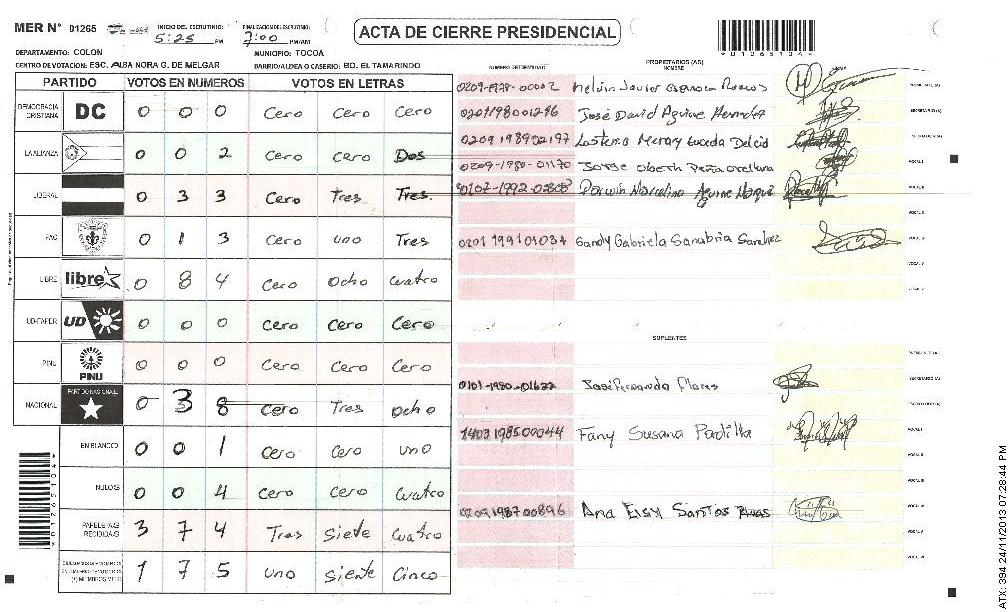 MER N° 01265 INICIO DEL ESCRUTINIO: 5:25 PM FINALIZACION DEL ESCRUTINIO: 7:00 PM/AM ACTA DE CIERRE PRESIDENCIAL
DEPARTAMENTO: COLON MUNICIPIO: TOCOA
CENTRO DE VOTACION: ESC. ALBA NORA G. DE MELGAR BARRIO/ALDEA O CASERIO: BO. EL TAMARINDO
PARTIDO VOTOS EN NUMEROS VOTOS EN LETRAS
DEMOCRACIA CRISTIANA DC 0 0 0 Cero Cero Cero
LA ALIANZA 0 0 2 Cero Cero Dos
LIBERAL 0 3 3 Cero Tres Tres.
PAC 0 1 3 Cero uno Tres
LIBRE libre 0 8 4 Cero Ocho cuatro
UD-FAPER UD 0 0 0 Cero Cero Cero
PINU PINU 0 0 0 Cero Cero Cero
NACIONAL PARTIDO NACIONAL 0 3 8 Cero Tres Ocho
EN BLANCO 0 0 1 Cero Cero uno
NULOS 0 0 4 Cero Cero cuatro
PAPELETAS RECIBIDAS 3 7 4 Tres Siete cuatro
1 7 5 uno Siente Cinco
NUMERO DE IDENTIDAD PROPIETARIOS (AS) NOMBRE FIRMA
0209-1978-00002 Melvin Javier
0201198001296 José David Aguirre
0209 198902197
0209-1980-01170 Jorge Oberth Peña Orellana
0107-1992-02808 Darwin Marcelino Aguirre
0201 199101034 Gandy Gabriela Sanabria Sanchez
SUPLENTES
0101-1980-01622 José Fernando Flores
1403198500044 Fany Susana Padilla
0209198700896 Ana Elsy Santos Rivas
*01265104*
ATX: 394 24/11/2013 07:28:44 PM